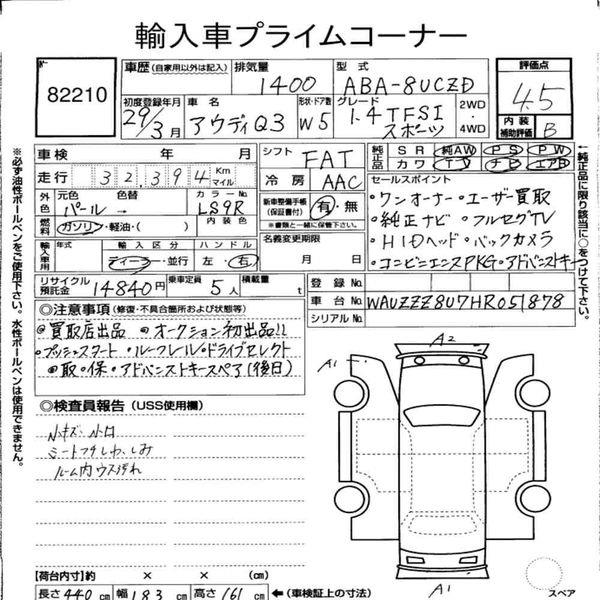 輸入車プライムコーナー
82210
車歴 (自家用以外は記入) 排気量 1400 型式 ABA-8UCZD
評価点 4.5
内装補助評価 B
初度登録年月 29/3月 車名 アウディQ3 形状・ドア数 W5 グレード 1.4 TFSI スポーツ 2WD・4WD
車検 年 月
走行 32,394 Km マイル
シフト FAT
純正品 SR 純AW PS PW
カワ TV ナビ エアB
外色 元色 パール → 色替 カラーNo. LS9R
冷房 AAC
燃料 ガソリン・軽油・( ) 内装色
新車整備手帳 (保証書付) 有・無
※書類と一緒に保管して下さい。
セールスポイント
・ワンオーナー・ユーザー買取
・純正ナビ・フルセグTV
・HIDヘッド・バックカメラ
・コンビニエンスPKG・アドバンストキー
輸入車用 年式 輸入区分 ディーラー・並行 ハンドル 左・右
名義変更期限 月 日
リサイクル預託金 14840円 乗車定員 5人 積載量 t
登録No.
車台No. WAUZZZ8U7HR051878
シリアルNo.
◎注意事項 (修復・不具合箇所および状態等)
◎買取店出品 ◎オークション初出品!!
・プッシュスタート・ルーフレール・ドライブセレクト
◎取・保・アドバンストキースペア(後日)
◎検査員報告 (USS使用欄)
小キズ 小凹
シートスレしわ、しみ
ルーム内ウス汚れ
A1
A2
A1
スペア
【荷台内寸】約 × × (cm)
長さ 440cm 幅 183cm 高さ 161cm ←(車検証上の寸法)
※必ず油性ボールペンをご使用下さい。水性ボールペンは使用できません。
←純正品に限り該当に○をつけて下さい。